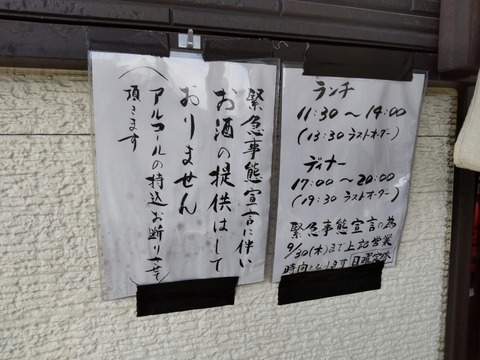 緊急事態宣言に伴い
お酒の提供はして
おりません
(アルコールの持込お断り致
頂きます)
ランチ
11:30~14:00
(13:30 ラストオーダー)
ディナー
17:00~20:00
(19:30 ラストオーダー)
緊急事態宣言の為
9/30(木)まで上記営業
時間となります 日曜定休